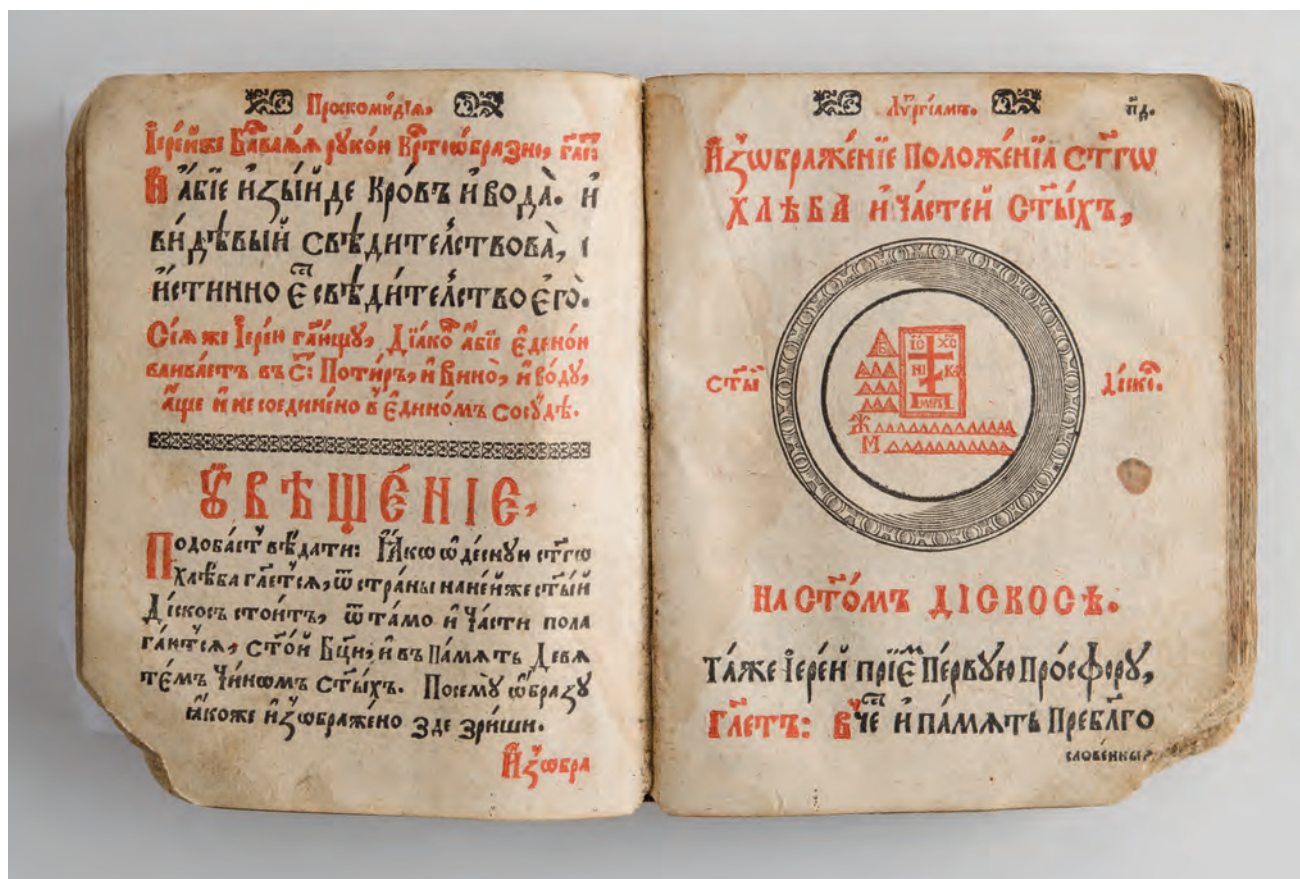 Проскомидїа,
Їере́йже Бл҃гавлѧ́ѧ руко́ю Крⷭ҇тоѡ́бразнѡ, гл҃ѧ:
И҆ а҆́бїе и҆зы́йде Кро́въ и҆ вода̀. и҆
ви́дѣвый свѣди́телствова̀, і
и҆́стинно є҆́ⷭ҇ свѣди́телство є҆гѡ̀.
Сїѧ҆ же Їере́ю гл҃ющу, Дїа́кѡⷩ҇ а҆́бїе є҆ди́ною
влива́етъ въ С: Поти́ръ, и҆ Вино̀, и҆ во́ду,
а҆́ще и҆ не соединено̀ в є҆ди́номъ Сосу́дѣ.
Ꙋ҆ВѢЩЕ́НЇЕ,
Подоба́етъ вѣ́дати: Ꙗ҆́кѡ ѡ҆ десну́ю ст҃гѡ
Хлѣ́ба гл҃етсѧ, ѿ страны̀ на не́йже ст҃ы́й
Ді́скосъ стои́тъ, ѿ та́мо и҆ Ча́сти пола
га́ютсѧ, Ст҃о́й Бц҃и, и҆ въ Па́мѧть Девѧ
те́мъ Чи́нѡмъ Ст҃ы́хъ. По сему̀ ѡ҆́бразу
ꙗ҆́коже и҆зѡбраже́но зде зри́ши.
И҆зѡбра
Лѷргїамъ. п҃д.
И҆зѡбраже́нїе Положе́нїа Ст҃гѡ
ХЛѢ́БА и҆ Ча́стей Ст҃ы́хъ,
І҆С ХС
НИ КА
Ж
М
Ст҃ы́й Ді́скоⷭ҇.
НА СТ҃О́МЪ ДІ́СКОСѢ.
Та́же Їере́й прїе́мъ Пе́рвую Про́сфору,
Гл҃етъ: В че́ⷭ҇ и҆ па́мѧть Пребл҃го
слове́нныѧ